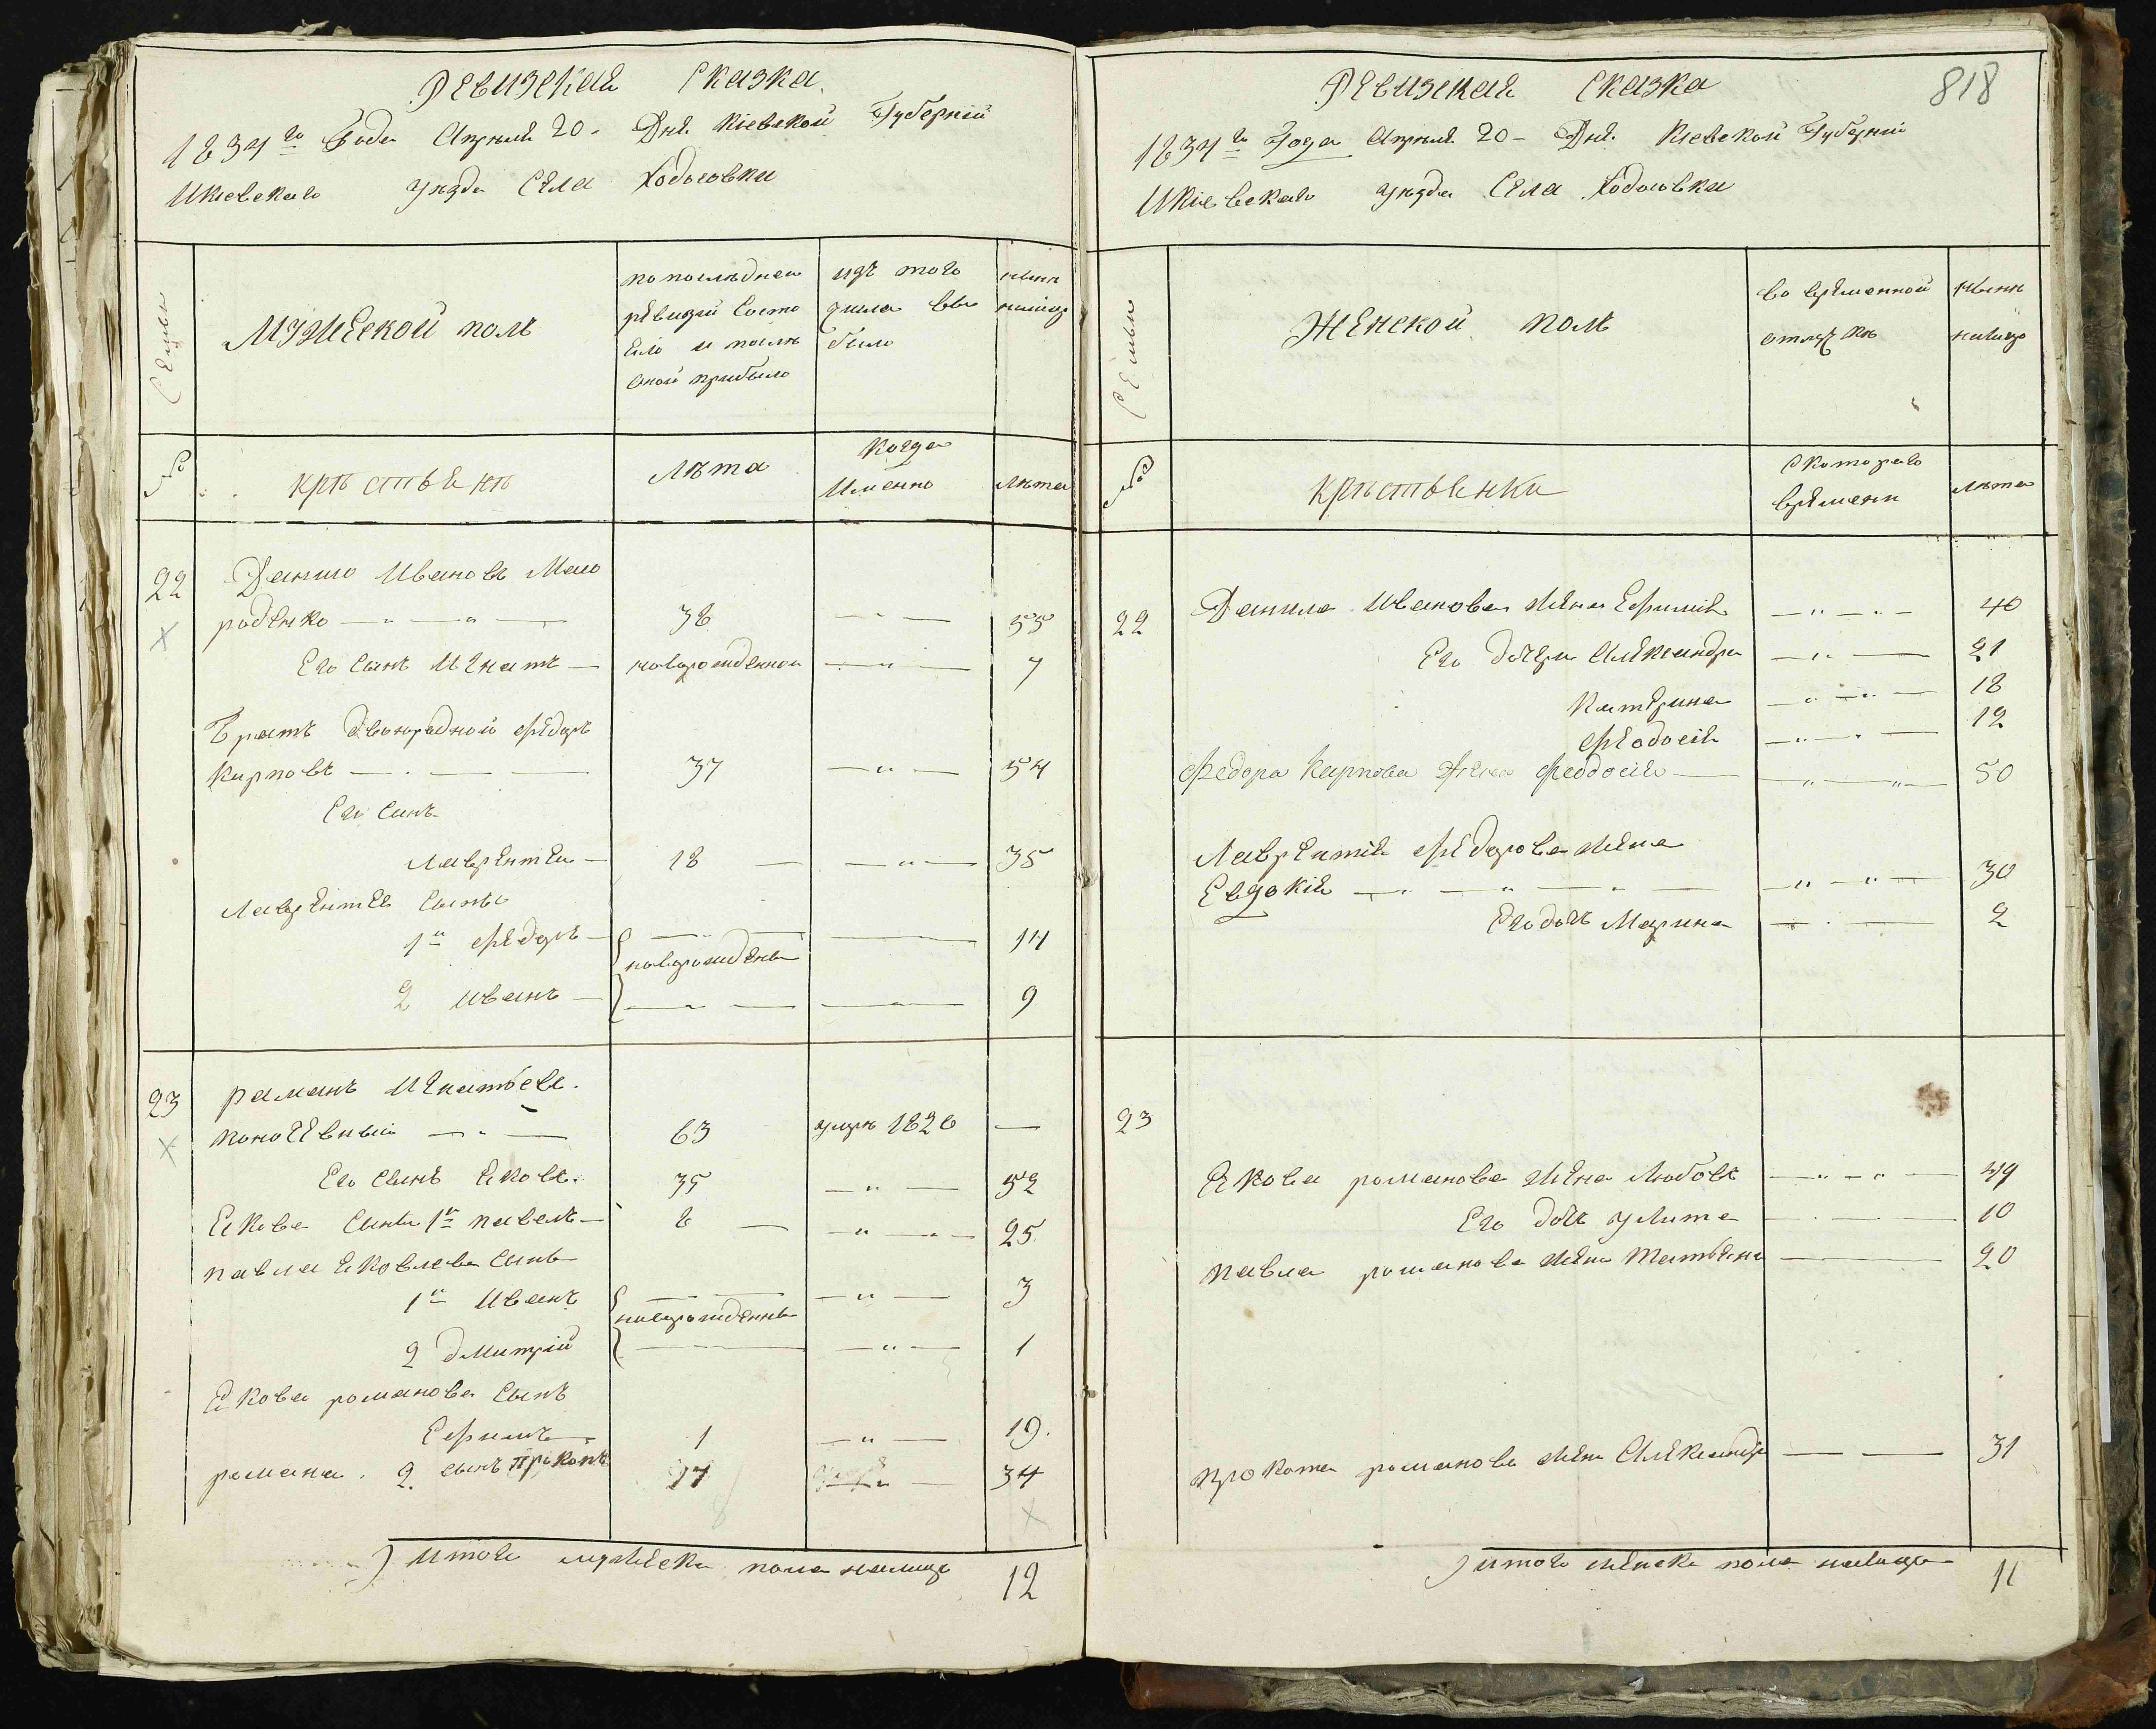 Ревизская Сказка
1834го Года Апреля 20 - Дня Кіевской Губерніи
И Кіевскаго уезда Села Ходосовки
Семьи
Мужеской полъ
по последней
ревизіи состо
яло и после
оной прибыло
изъ того
числа вы
было
ныне
налицо
№
крестьяне
Лета
Когда
Именно
Лета
22
Данило Ивановъ Мало
роденко 38 55
Его сынъ Игнатъ новорожденной 7
Братъ двоюродной Федоръ
Карповъ 37 54
Его сынъ
Лаврентей 18 35
Лаврентея сыны
1й Федоръ 14
новорожденны
2 Иванъ 9
23
Романъ Игнатьевъ
63 умре 1826
Его сынъ Яковъ 35 52
Якова сынъ 1й Павелъ 8 25
Павла Яковлева сынъ
1й Иванъ 3
новорожденны
2 Дмитрій 1
Якова романова сынъ
Ефимъ 1 19
романа 2 сынъ Прокопъ 17 34
Итого мужеска пола налицо 12
Ревизская Сказка 818
1834го Года Апреля 20 - Дня Кіевской Губерніи
И Кіевскаго уезда Села Ходосовки
Семьи
Женской полъ
во временной
отлучке
ныне
налицо
№
крестьянки
С котораго
времени
лета
22 Данила Иванова жена Ефимія 40
Его дочери Александра 21
Катерина 18
Феодосія 12
Федора Карпова жена Феодосія 50
Лаврентія Федорова жена
Евдокія 30
Его дочь Марина 2
23
Якова романова жена Любовь 49
Его дочь Улита 10
Павла романова жена Татьяна 20
Прокопа романова жена Александра 31
Итого женска пола налицо 11